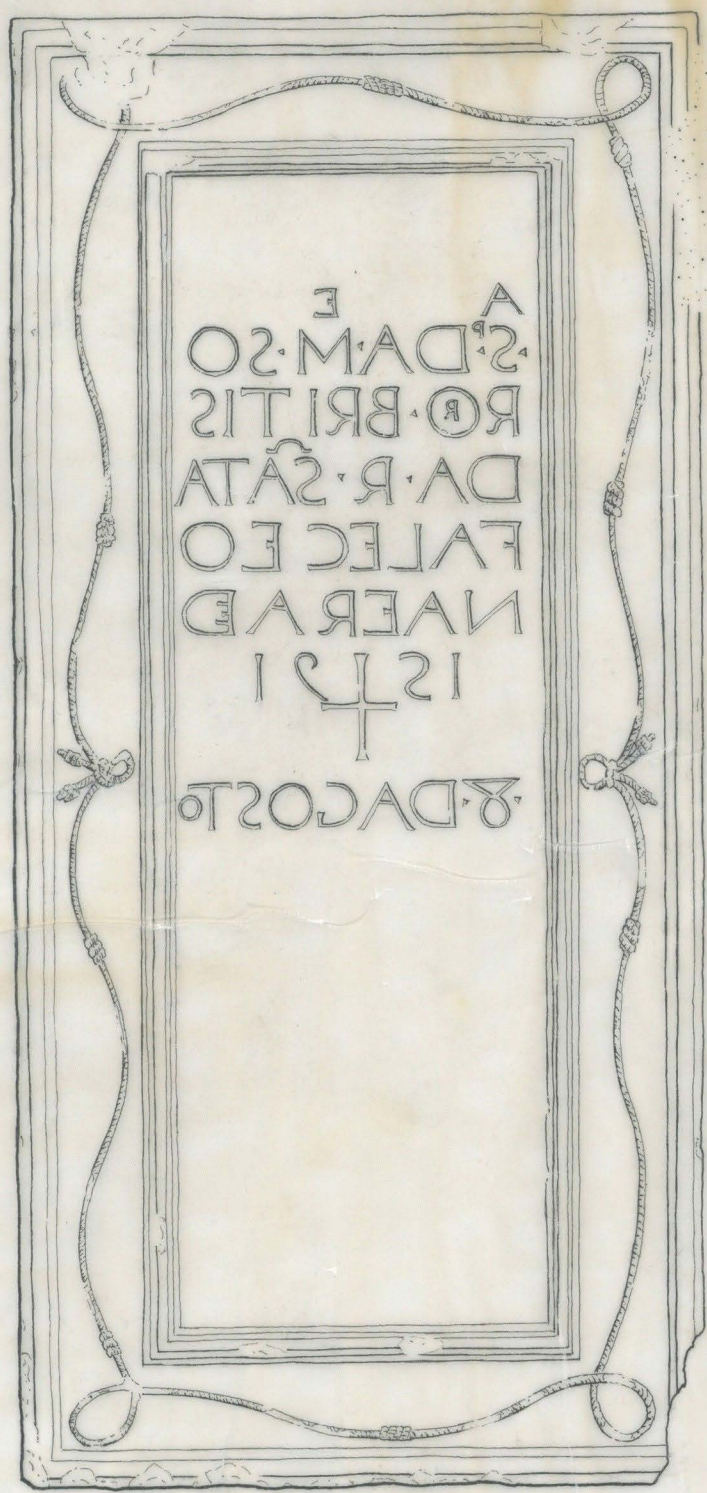 A E
·S·ᴾDA·M·SO
ROR·BRITIS
DA·R·SÃTA
FALECEO
NAERADE
1591
·8·DAGOSTO